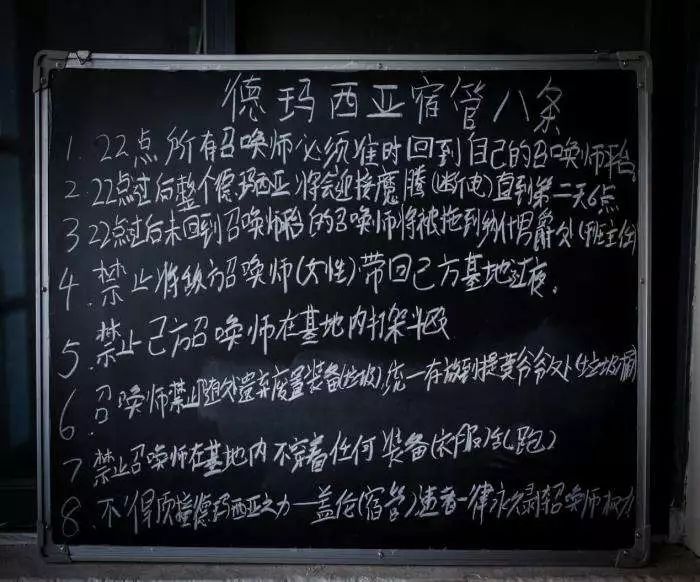 德玛西亚宿管八条
1. 22点所有召唤师必须准时回到自己的召唤师平台。
2. 22点过后整个德玛西亚将会迎接魔腾(断电)直到第二天6点
3 22点过后未回到召唤师台的召唤师将被拖到纳什男爵处(班主任)
4. 禁止将敌方召唤师(女性)带回己方基地过夜。
5. 禁止己方召唤师在基地内打架斗殴
6. 召唤师禁止随处遗弃废置装备(垃圾),统一存放到提莫爷爷处(垃圾桶)
7 禁止召唤师在基地内不穿着任何装备(衣服)乱跑)
8. 不得顶撞德玛西亚之力—盖伦(宿管)违者一律永久剥夺召唤师权力